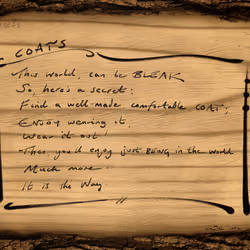 COATS
This world, can be BLEAK
So, here's a secret:
Find a well-made comfortable COAT;
Enjoy wearing it,
Wear it out!
Then, you'd enjoy just BEING in the world
Much more.
It is the Way